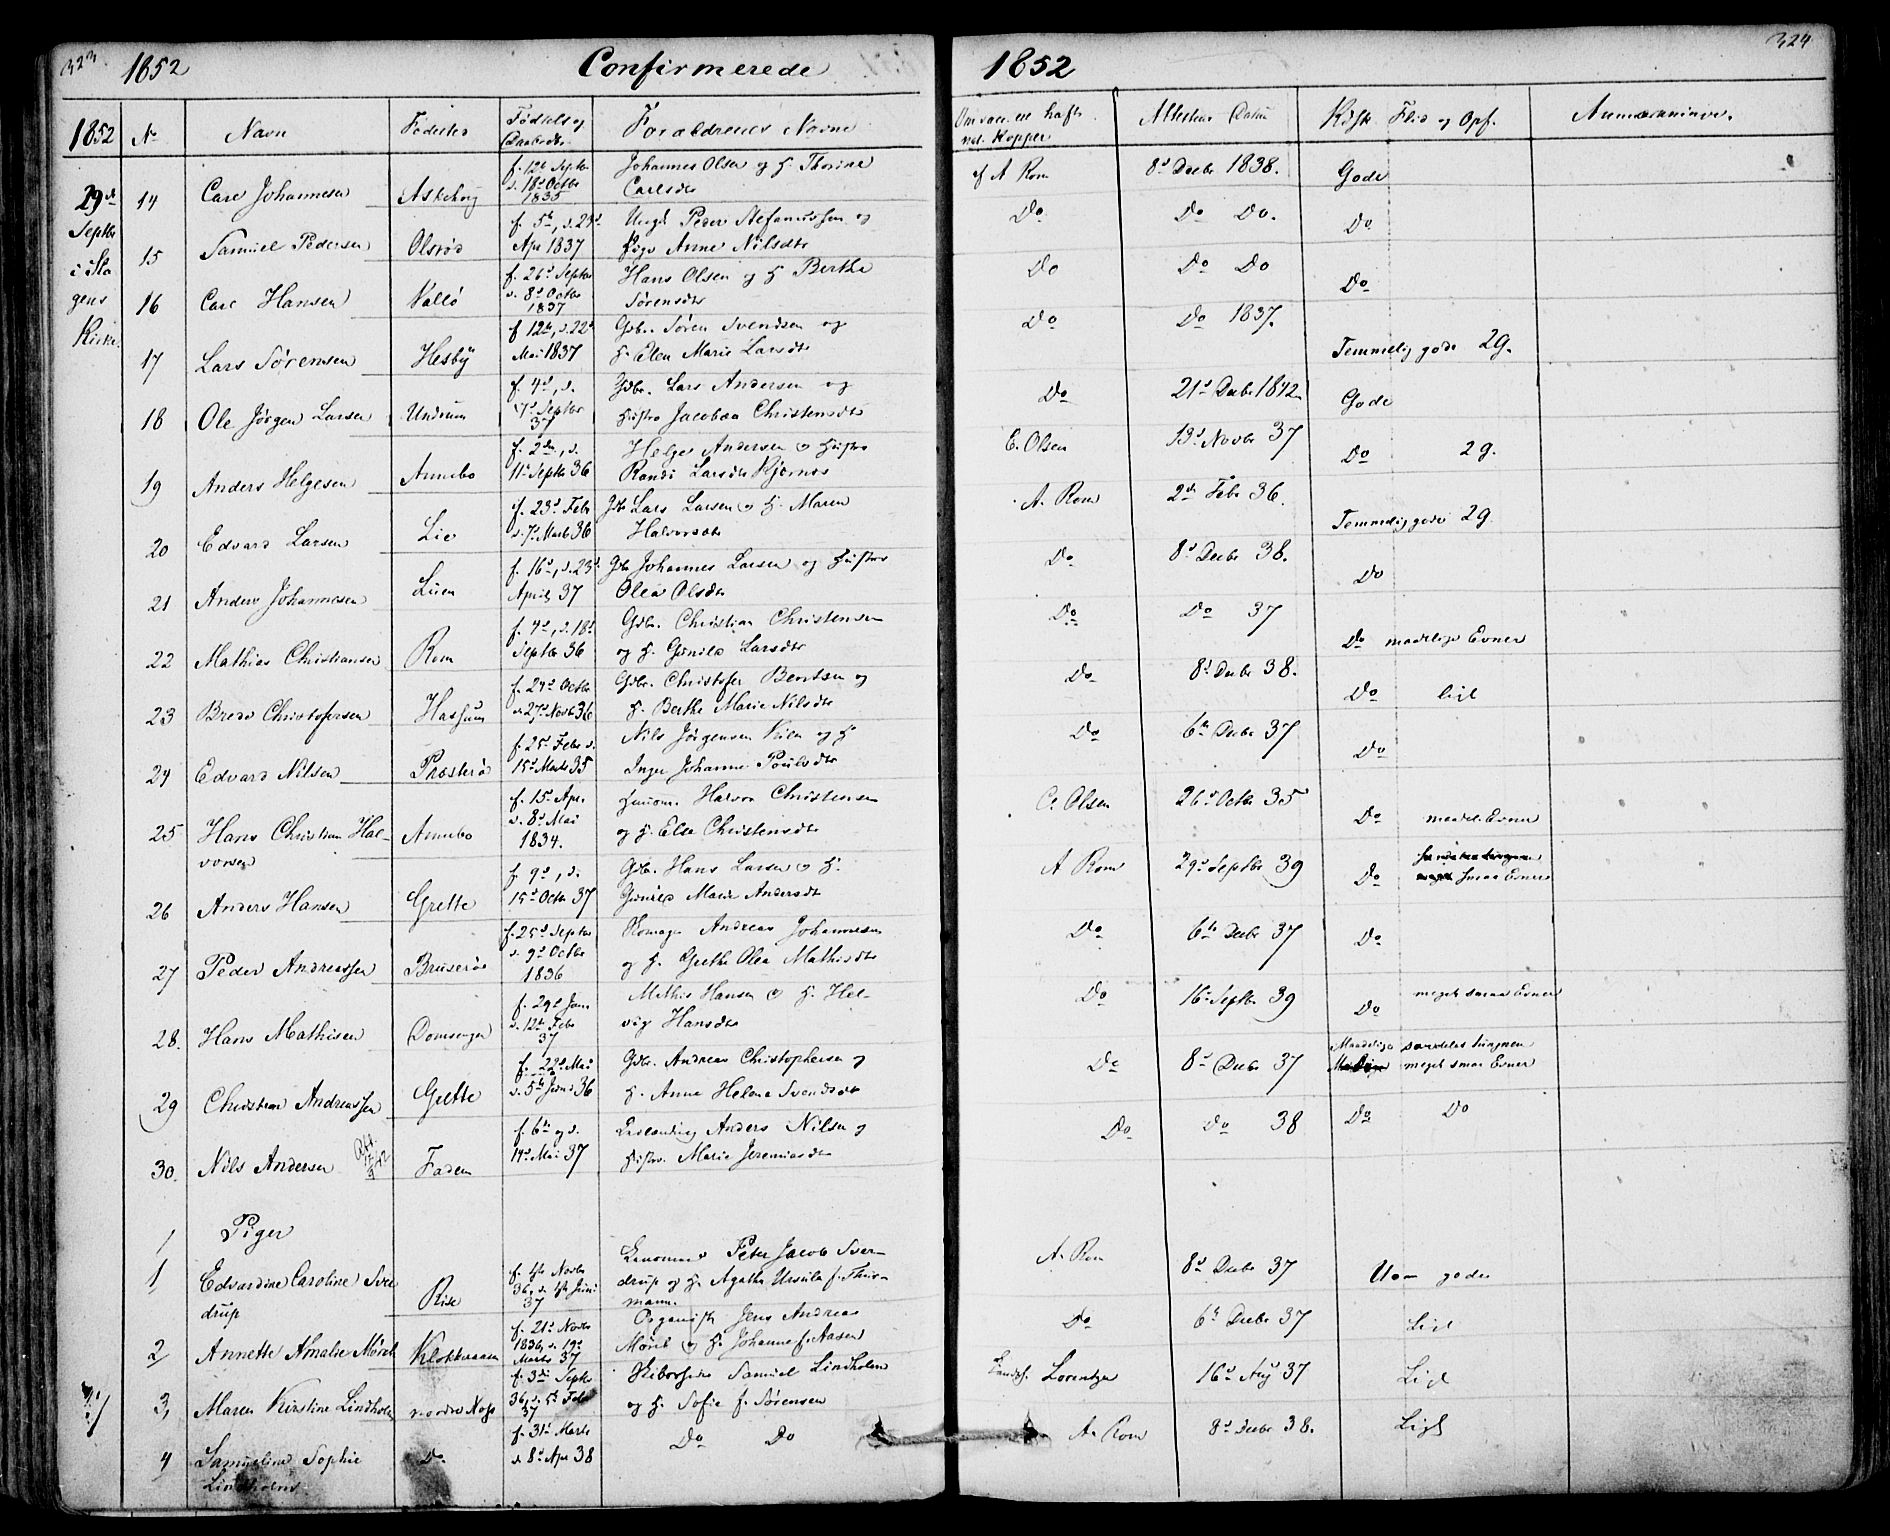 323 1852 Confirmerede 1852 324
1852 No Navn Fødested Fødsels og Daabsdt. Forældrenes Navne nat. Kopper Attestens Datum Flid og Opf. Anmærkninger
29de Septbr i Slagens Kirke
14 Carl Johannesen Askehoug f. 12te Septbr d. 18de Octbr 1835 Johannes Olsen og H. Thorine Carlsdtr A Rom 8de Decbr 1838. Gode
15 Samuel Pedersen Olsrød f. 5te, d. 24de Apr 1837 Ungk Peder Stefanussen og Pige Anne Nilsdtr Do Do Do. Do
16 Carl Hansen Vallø f. 26de Septbr d. 8de Octbr 1837 Hans Olsen og H Berthe Sørensdtr Do Do Do Do
17 Lars Sørensen Hesby f 12te, d. 22de Mai 1837 Gdbr. Søren Svendsen og H. Elen Marie Larsdtr Do Do 1837. Temmelig gode 2g.
18 Ole Jørgen Larsen Undrum f. 4de, d. 17de Septbr 37 Gdbr. Lars Andersen og Hustro Jacobea Christensdtr Do 21de Decbr 1842 Gode
19 Anders Helgesen Aunebo f. 2den, d. 11te Septbr 36 Helge Andersen o Hustro Randi Larsdtr Kjernes E. Olsen 13de Novbr 37 Do 2g.
20 Edvard Larsen Lie f. 23de Febr d. 7de Marts 36 Gdb Lars Larsen o H. Maren Halvorsdtr A. Rom 2den Febr 36. Temmelig gode 2g.
21 Anders Johannesen Lien f. 16de, d. 23de April 37 Gdb Johannes Larsen og Hustro Olea Olsdtr Do 8de Decbr 38. Do
22 Mathias Christiansen Rom f. 4de, d. 18de Septbr 36 Gdbr. Christian Christensen og H. Gunild Larsdtr Do Do 37 Do maadelige Evner
23 Brede Christofersen Hassum f. 24de Octbr d. 27de Novb 36 Gdbr. Christofer Bentsen og H. Berthe Marie Nilsdtr Do 8de Decbr 38. Do ligl
24 Edvard Nilsen Præsterød f. 25de Febr d. 15de Marts 35 Nils Jørgensen og H Inger Johanne Poulsdtr Do 6te Decbr 37 Do
25 Hans Christian Halvorsen Aunebo f. 15. Apr. d. 8de Mai 1834. Halvor Christensen og H. Else Christensdtr E. Olsen 26de Octbr 35 Do maadel. Evner
26 Anders Hansen Grette f. 9de, d. 15de Octb 37 Gdbr. Hans Larsen o H. Gunild Marie Andersdt A Rom 29de Septbr 39 Do smaa Evner
27 Peder Andreassen Bruserød f. 25de Septbr d. 9de Octbr 1836 Andreas Johannesen og H. Grethe Olea Mathisdtr Do 6te Decbr 37 Do
28. Hans Mathisen Domsengen f. 29de Jan d. 12te Febr 37 Mathis Hansen o H. Helvig Hansdtr Do 16de Septbr 39 Do meget smaa Evner
29 Christian Andreassen Grette f. 22de Mai d. 5te Juni 36 Gdbr. Andreas Christophersen og H. Anne Helene Svendsdtr Do 8de Decbr 37 Maadelige særdeles tungnem meget smaa Evner
30. Nils Andersen Faden f. 6te og d. 14de Mai 37 Anders Nilsen og Hustro. Marie Jeremiasdtr Do Do 38 Do Do
Piger
1 Edvardine Caroline Sverdrup Rise f. 4de Novbr 36, d. 4de Juni 37 Peter Jacob Sverdrup og H. Agathe Ursula f. Thurmann. A. Rom 8de Decbr 37 gode
2 Annette Amalie Mørch f. 21de Novbr 1836, d. 19de Marts 37 Organist Jens Andreas Mørch o H. Johanne f. Aasen Do 6te Decbr 37 Ligl
3, Maren Kirstine Lindholm f. 3die Septbr 36, d. 5te Febr 37 Samuel Lindholm og H. Sofie f. Sørensen Lorentzen 16de Aug 37 Ligl
4 Samueline Sophie Lindholm Do f. 31te Marts d. 8de Apr 38 Do Do A. Rom 8de Decbr 38. Ligl